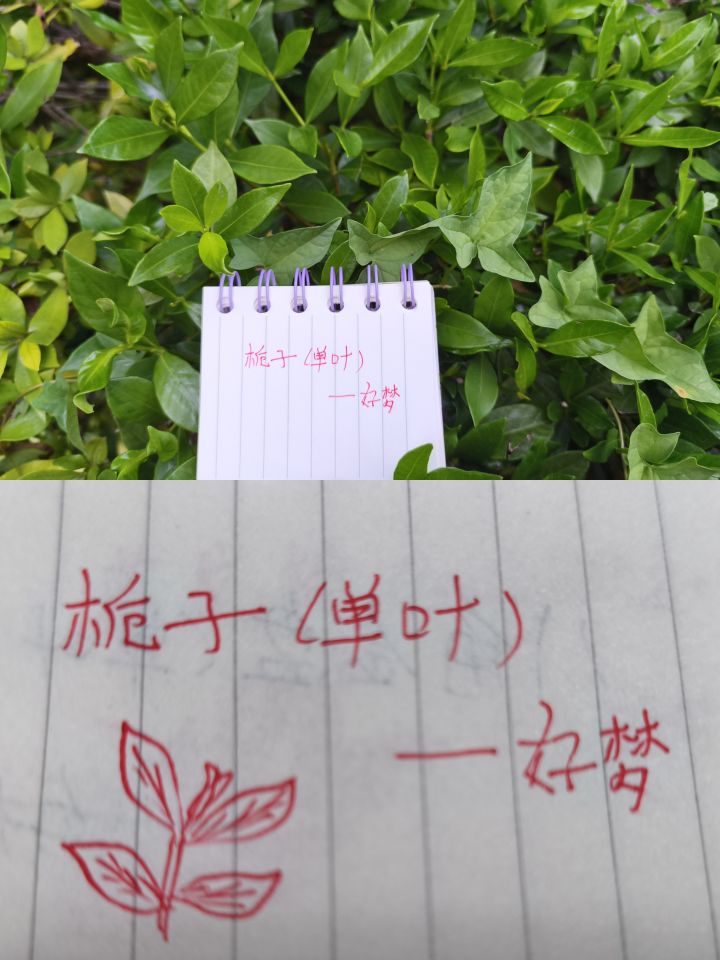 栀子(单叶)
—好梦
栀子(单叶)
—好梦